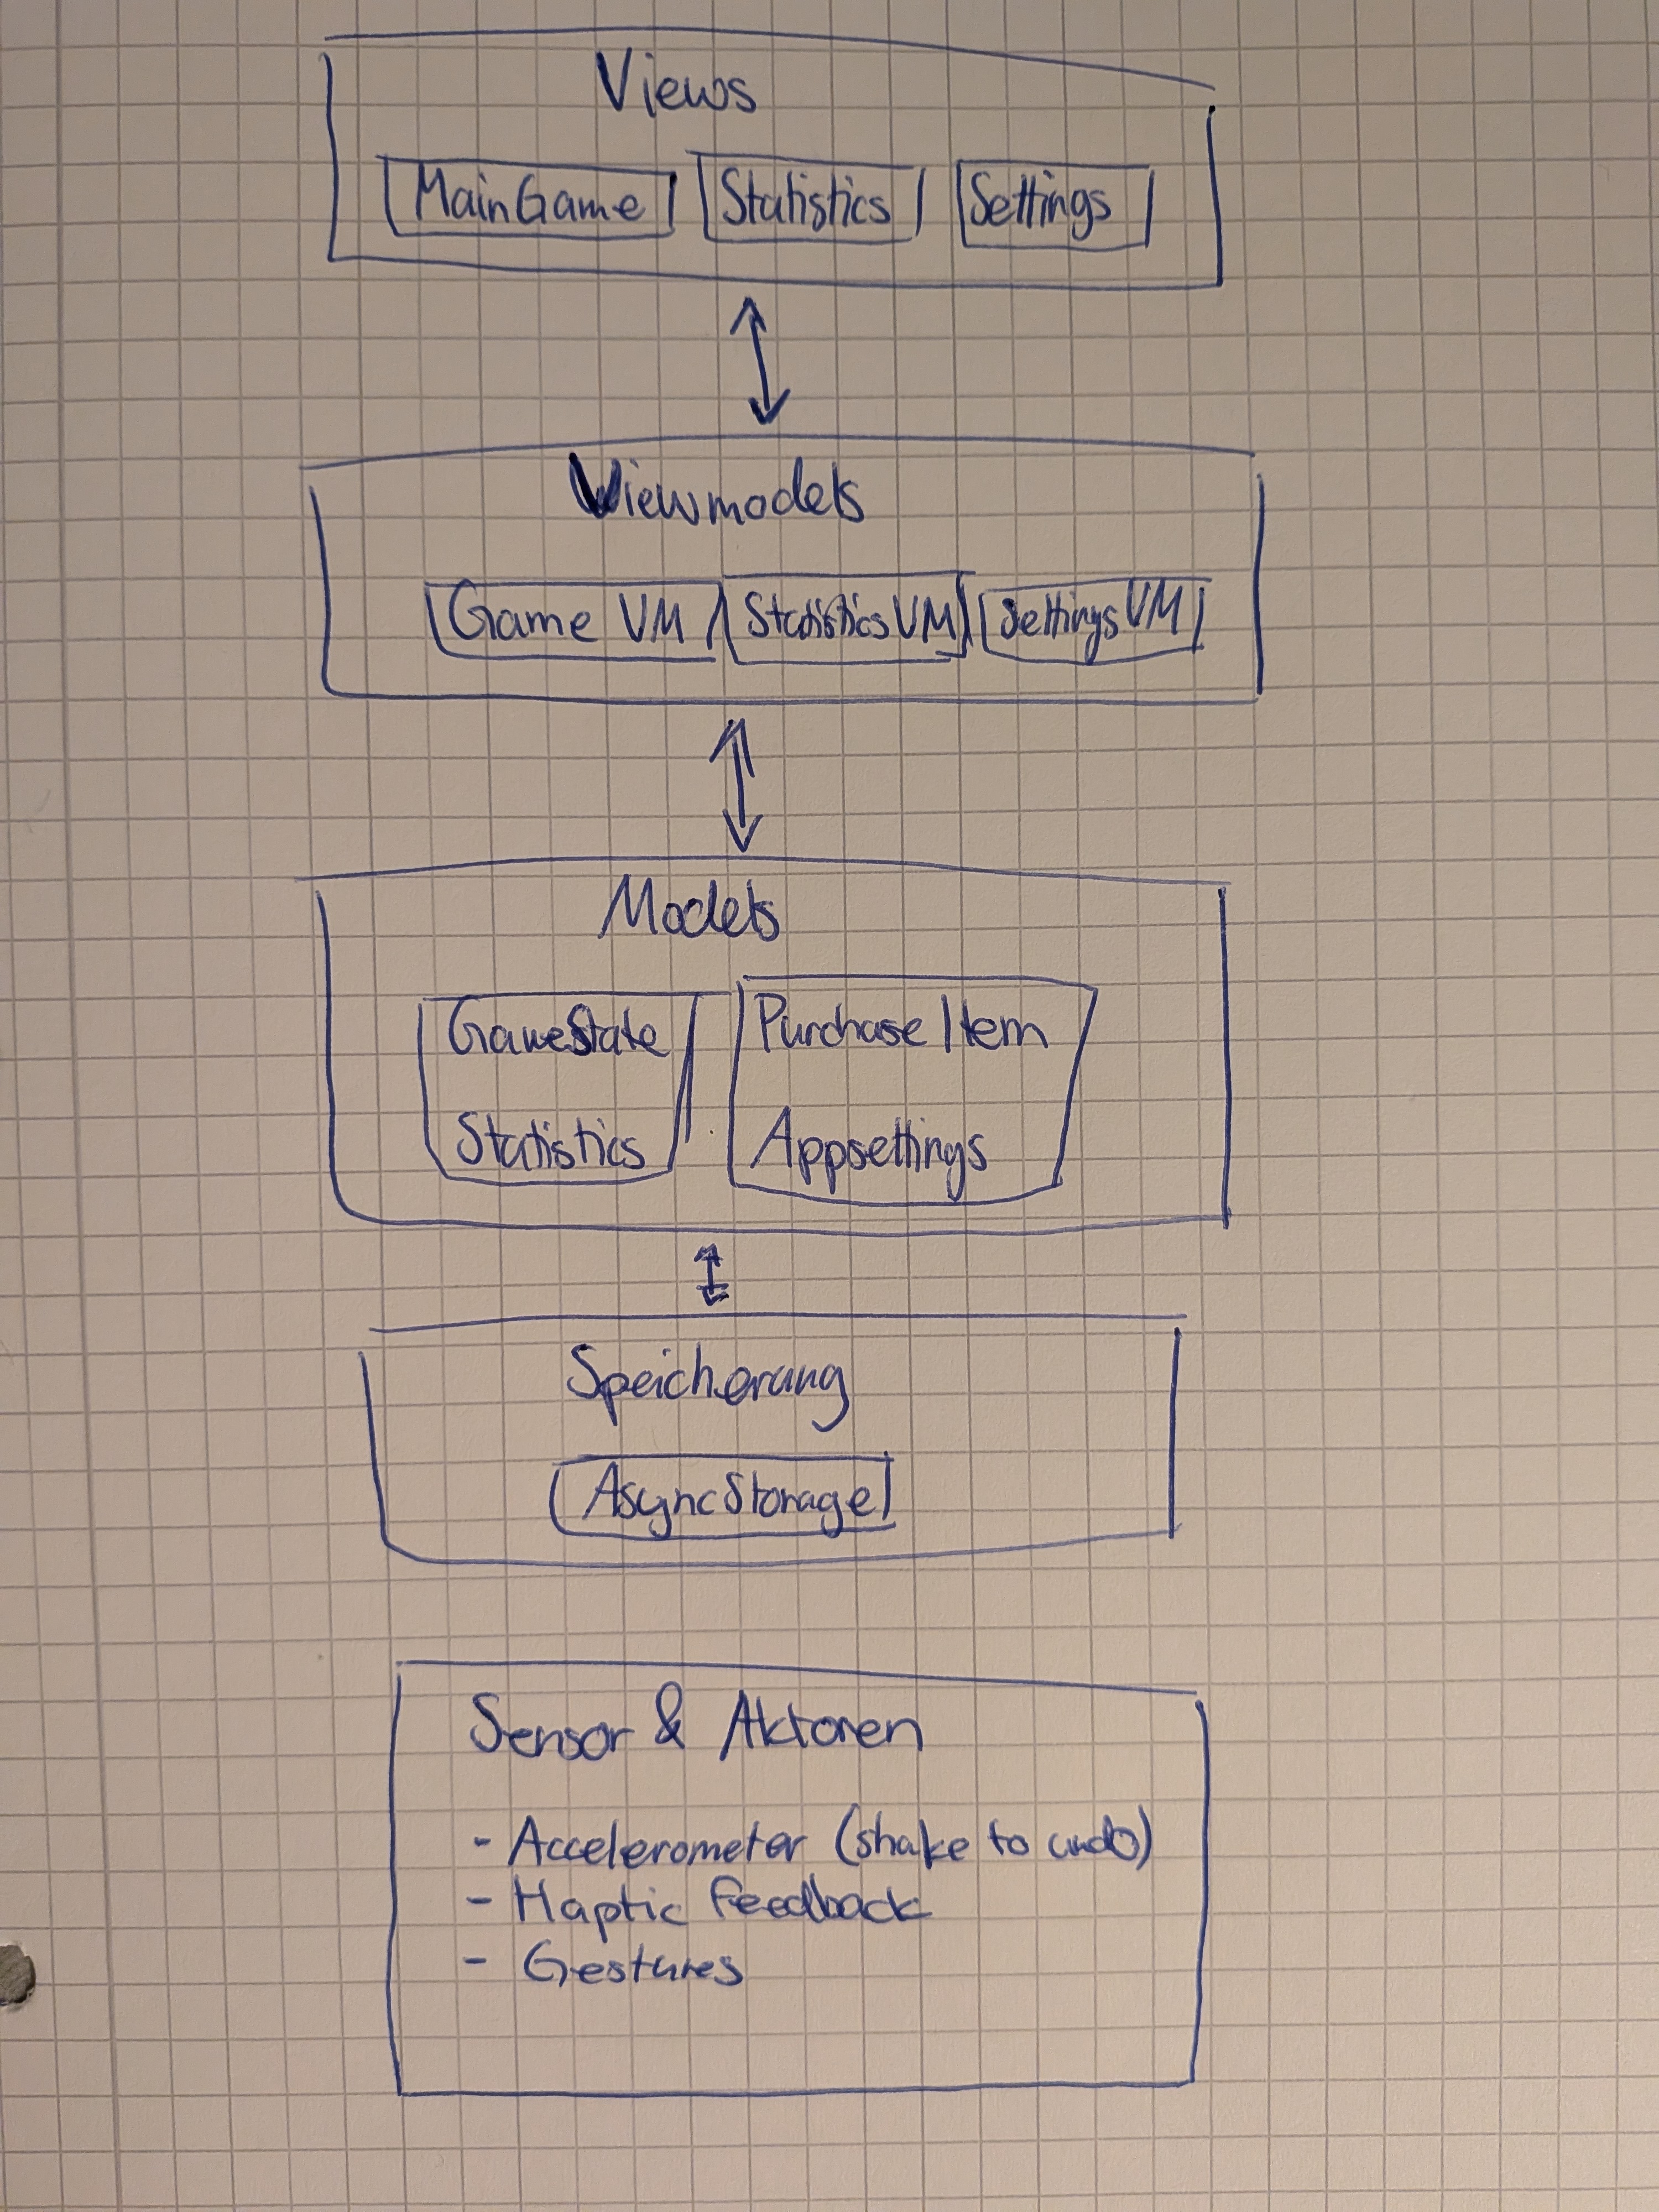 Views
MainGame Statistics Settings
Viewmodels
Game VM StatisticsVM SettingsVM
Models
GameState PurchaseItem
Statistics Appsettings
Speicherung
AsyncStorage
Sensor & Aktoren
- Accelerometer (shake to undo)
- Haptic Feedback
- Gestures